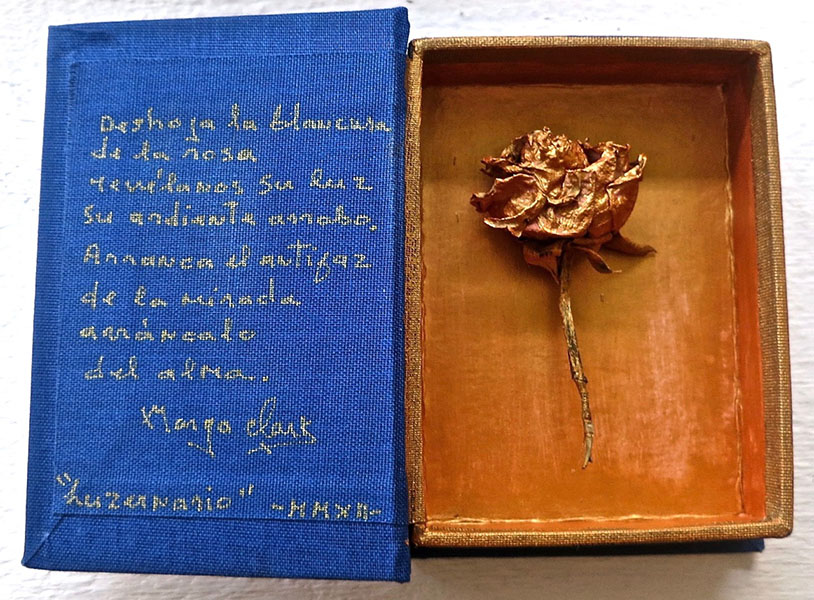 Deshoja la blancura
de la rosa
revélanos su luz
su ardiente arrobo.
Arranca el antifaz
de la mirada
arráncalo
del alma.
Margo
"Luzernario" -MMXII-